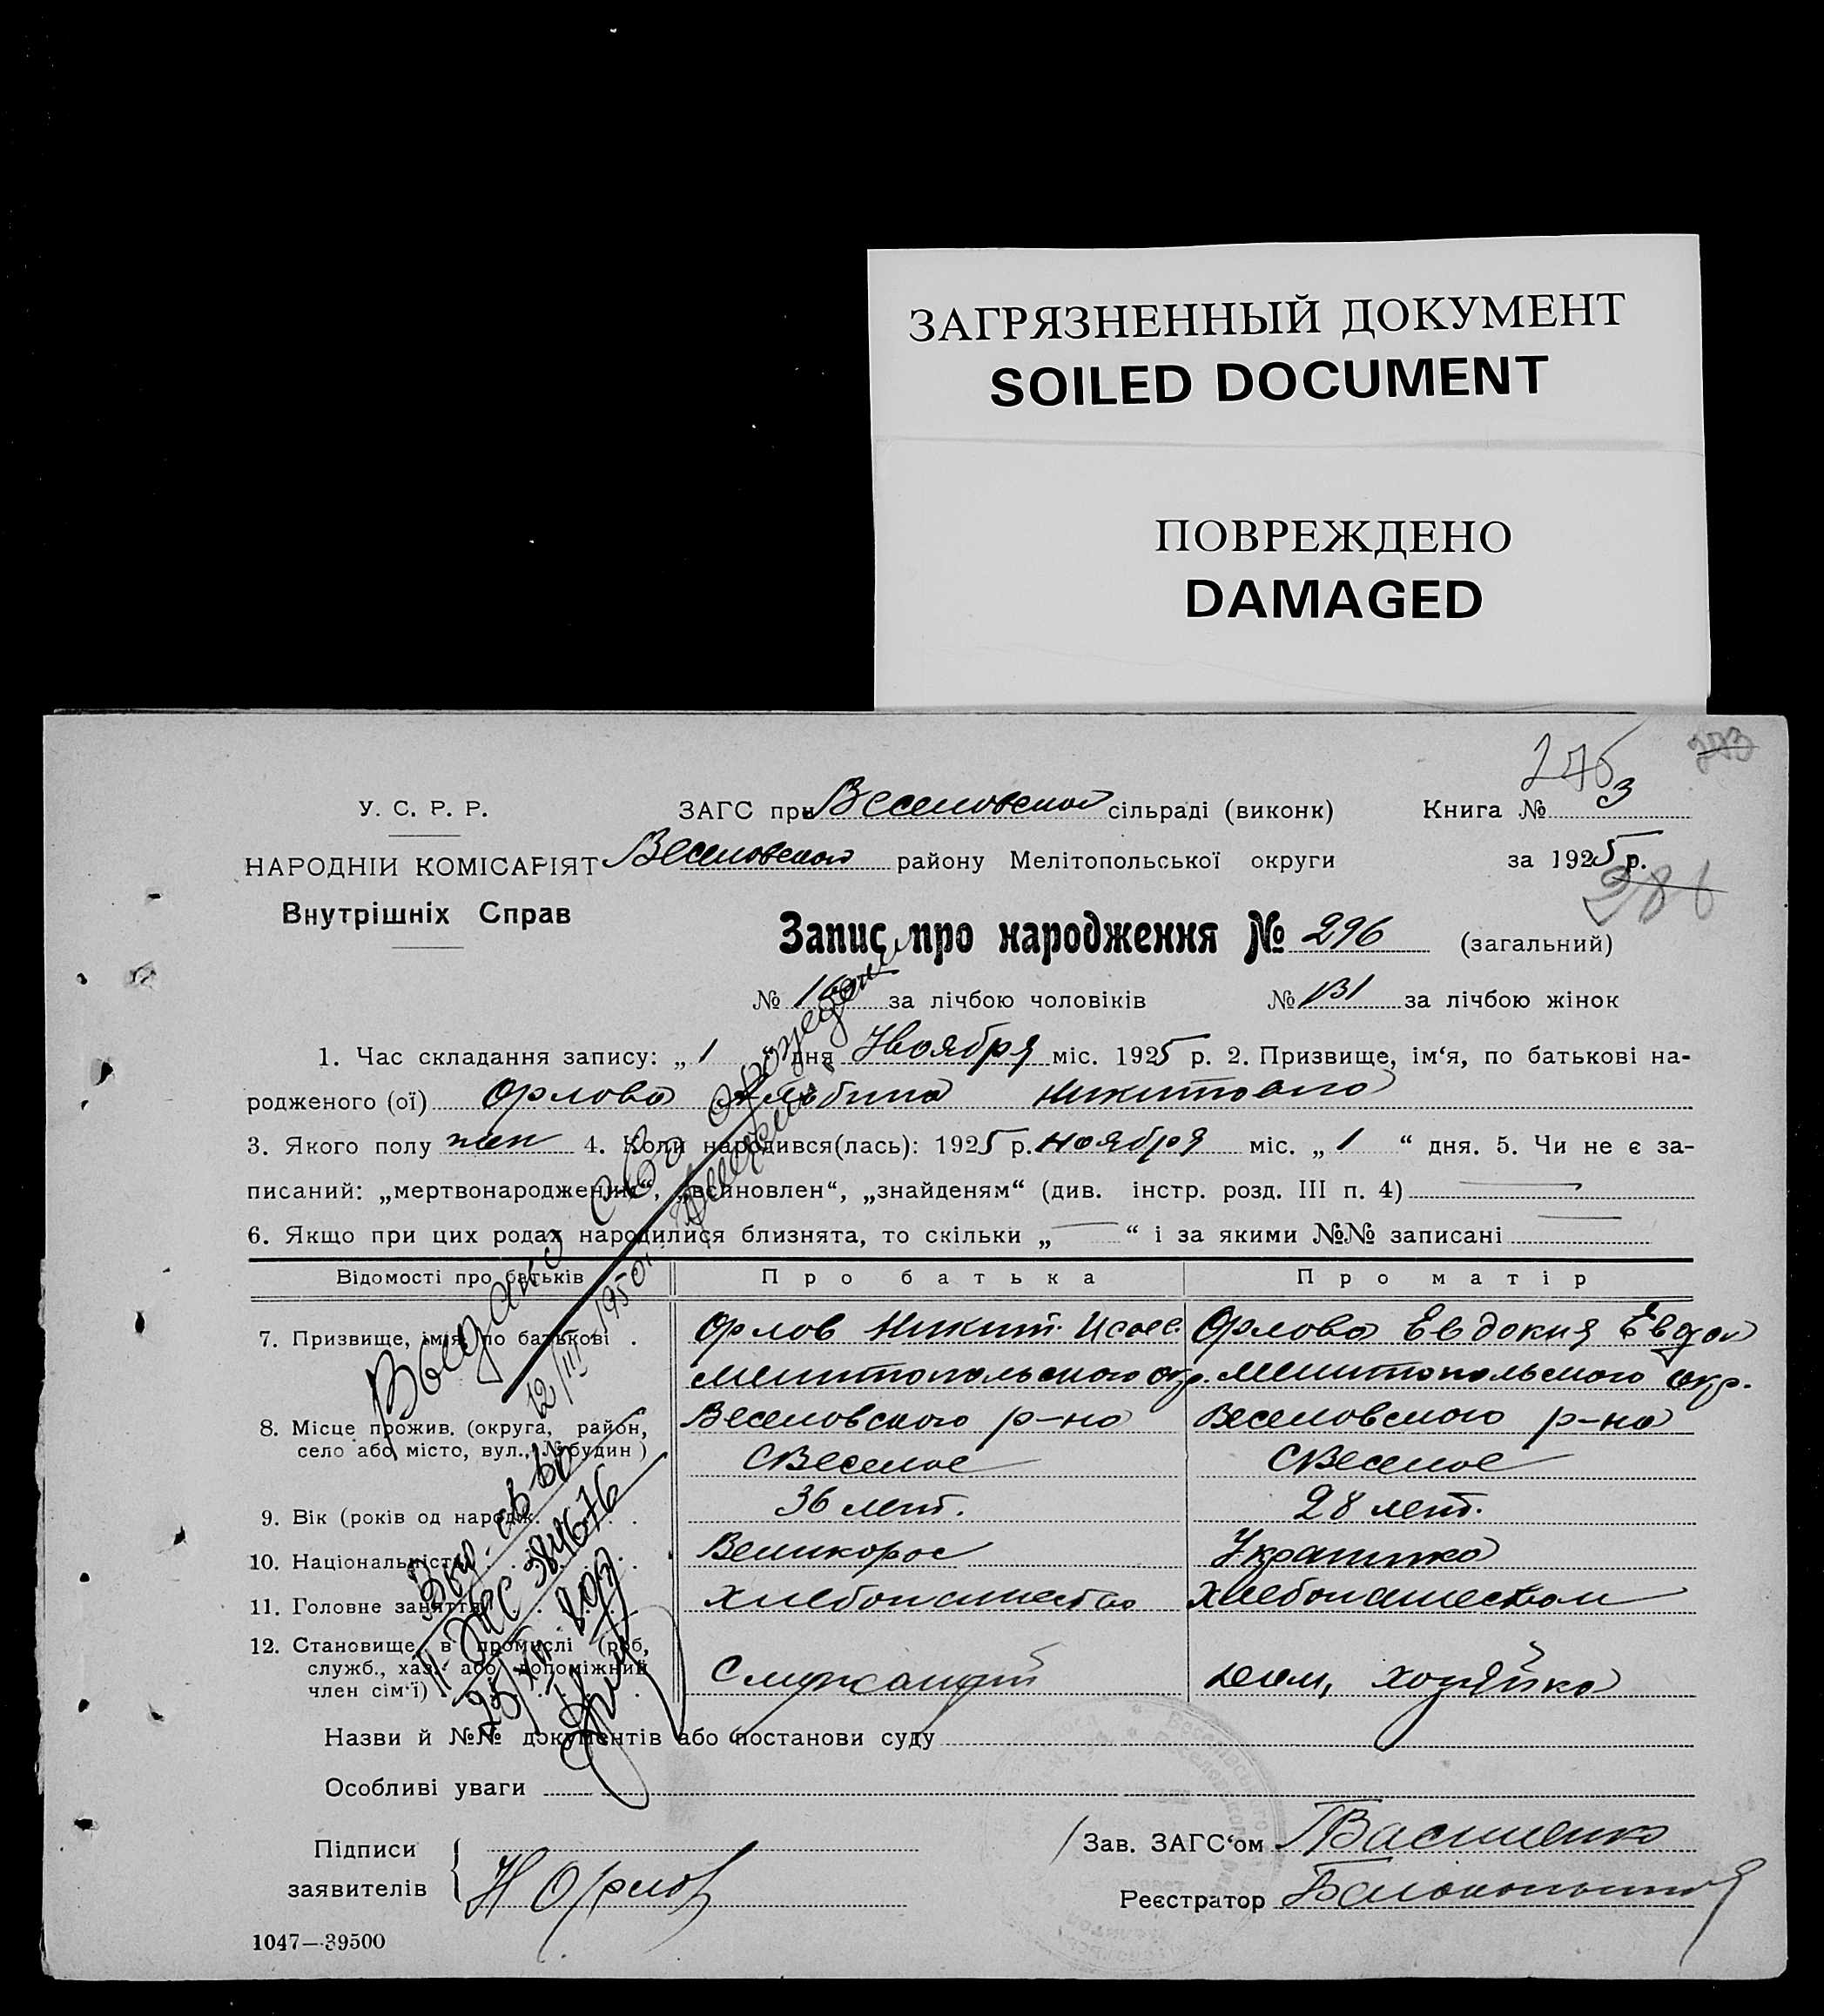 ЗАГРЯЗНЕННЫЙ ДОКУМЕНТ
SOILED DOCUMENT
ПОВРЕЖДЕНО
DAMAGED
У. С. Р. Р.
ЗАГС при Веселовской сільраді (виконк)
Книга № 3
НАРОДНІЙ КОМІСАРІЯТ
Веселовского району Мелітопольської округи
за 1925 р.
Внутрішніх Справ
Запис про народження № 296 (загальний)
№ за лічбою чоловіків № 131 за лічбою жінок
1. Час складання запису: „ 1 “ дня Ноября міс. 1925 р. 2. Призвище, ім‘я, по батькові на-
родженого (ої) Орлова Альбина Никитовна
3. Якого полу жен 4. Коли народився(лась): 1925 р. ноября міс. „ 1 “ дня. 5. Чи не є за-
писаний: „мертвонароджений“, „всиновлен“, „знайденям“ (див. інстр. розд. III п. 4)
6. Якщо при цих родах народилися близнята, то скільки „ “ і за якими №№ записані
Відомості про батьків Про батька Про матір
7. Призвище, імя, по батькові . Орлов Никит. Исаев. Орлова Евдокия Евдок
Мелитопольского окр. Мелитопольского окр.
8. Місце прожив. (округа, район, Веселовского р-на Веселовского р-на
село або місто, вул., № будин) С Веселое С Веселое
9. Вік (років од народж. 36 лет. 28 лет.
10. Національність Великорос Украинка
11. Головне заняття Хлебопашество Хлебопашеством
12. Становище в промислі (роб,
служб., хаз. або допоміжний Служащий дом, хозяйка
член сім‘ї)
Назви й №№ документів або постанови суду
Особливі уваги
Підписи
заявителів Н Орлов
Зав. ЗАГС‘ом Василенко
Реєстратор
1047—39500
Выдано св о рожден
12/III 1950г.
384676